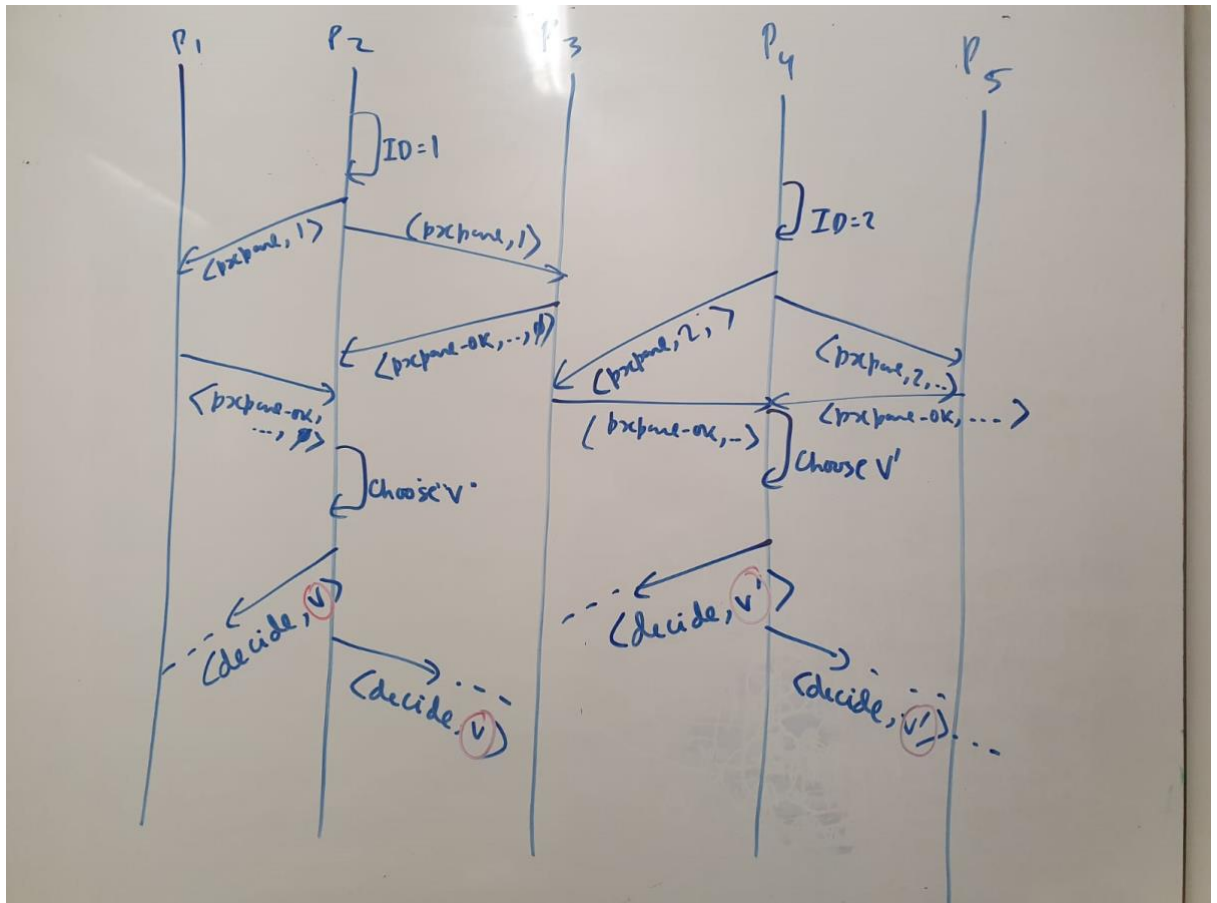 P1 P2 P3 P4 P5
ID=1
ID=2
<prepare, 1>
(prepare, 1)
<prepare-ok, .., ϕ>
<prepare, 2, >
<prepare, 2, ..>
<prepare-ok,
..., ϕ>
<prepare-ok, ..>
<prepare-ok, ....>
Choose V
Choose V'
<decide, V>
<decide, V>
<decide, V'>
<decide, V'>